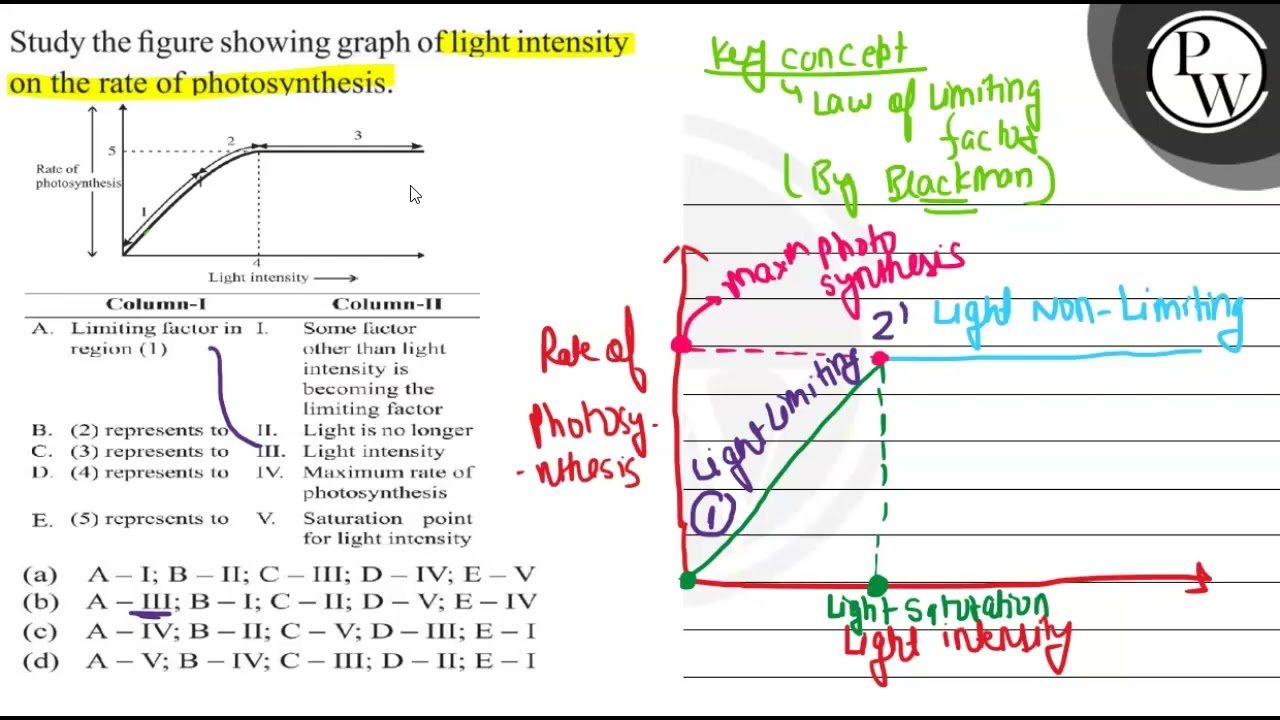 Study the figure showing graph of light intensity
on the rate of photosynthesis.
5
2
3
Rate of
photosynthesis
1
4
Light intensity
Column-I Column-II
A. Limiting factor in I. Some factor
region (1) other than light
intensity is
becoming the
limiting factor
B. (2) represents to II. Light is no longer
C. (3) represents to III. Light intensity
D. (4) represents to IV. Maximum rate of
photosynthesis
E. (5) represents to V. Saturation point
for light intensity
(a) A – I; B – II; C – III; D – IV; E – V
(b) A – III; B – I; C – II; D – V; E – IV
(c) A – IV; B – II; C – V; D – III; E – I
(d) A – V; B – IV; C – III; D – II; E – I
Key concept
Law of Limiting
factor
(By Blackman)
PW
maxm photo
synthesis
2'
Light Non-Limiting
Rate of
photosy-
-nthesis
Light Limiting
1'
Light saturation
Light intensity